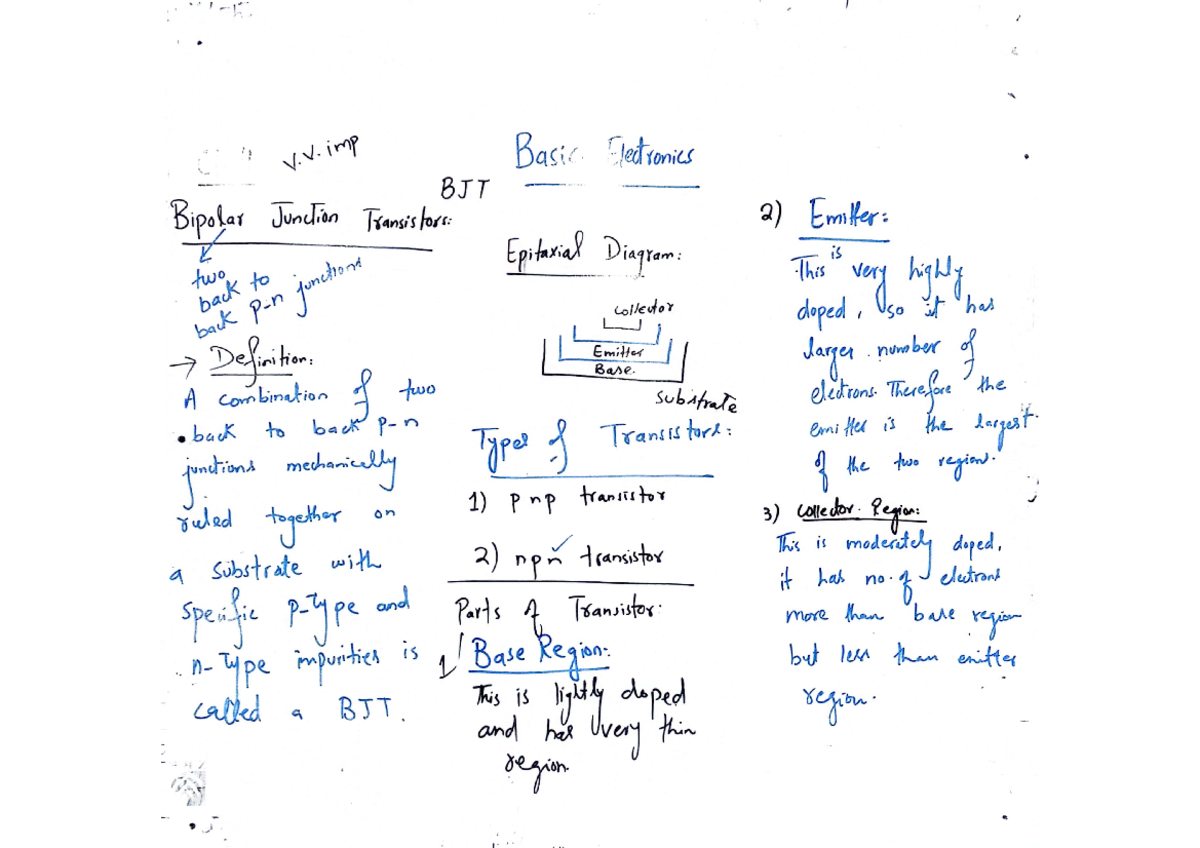 V.V. imp
Basic Electronics
BJT
Bipolar Junction Transistors:
two
back to
back p-n junctions
→ Definition:
A combination of two
back to back p-n
junctions mechanically
ruled together on
a substrate with
specific p-Type and
n-Type impurities is
called a BJT.
Epitaxial Diagram:
Collector
Emitter
Base.
Substrate
Types of Transistors:
1) pnp transistor
2) npn transistor
Parts of Transistor:
1) Base Region:
This is lightly doped
and has very thin
region.
2) Emitter:
This is very highly
doped, so it has
larger number of
electrons. Therefore the
emitter is the largest
of the two region.
3) Collector Region:
This is moderately doped,
it has no. of electrons
more than base region
but less than emitter
region.